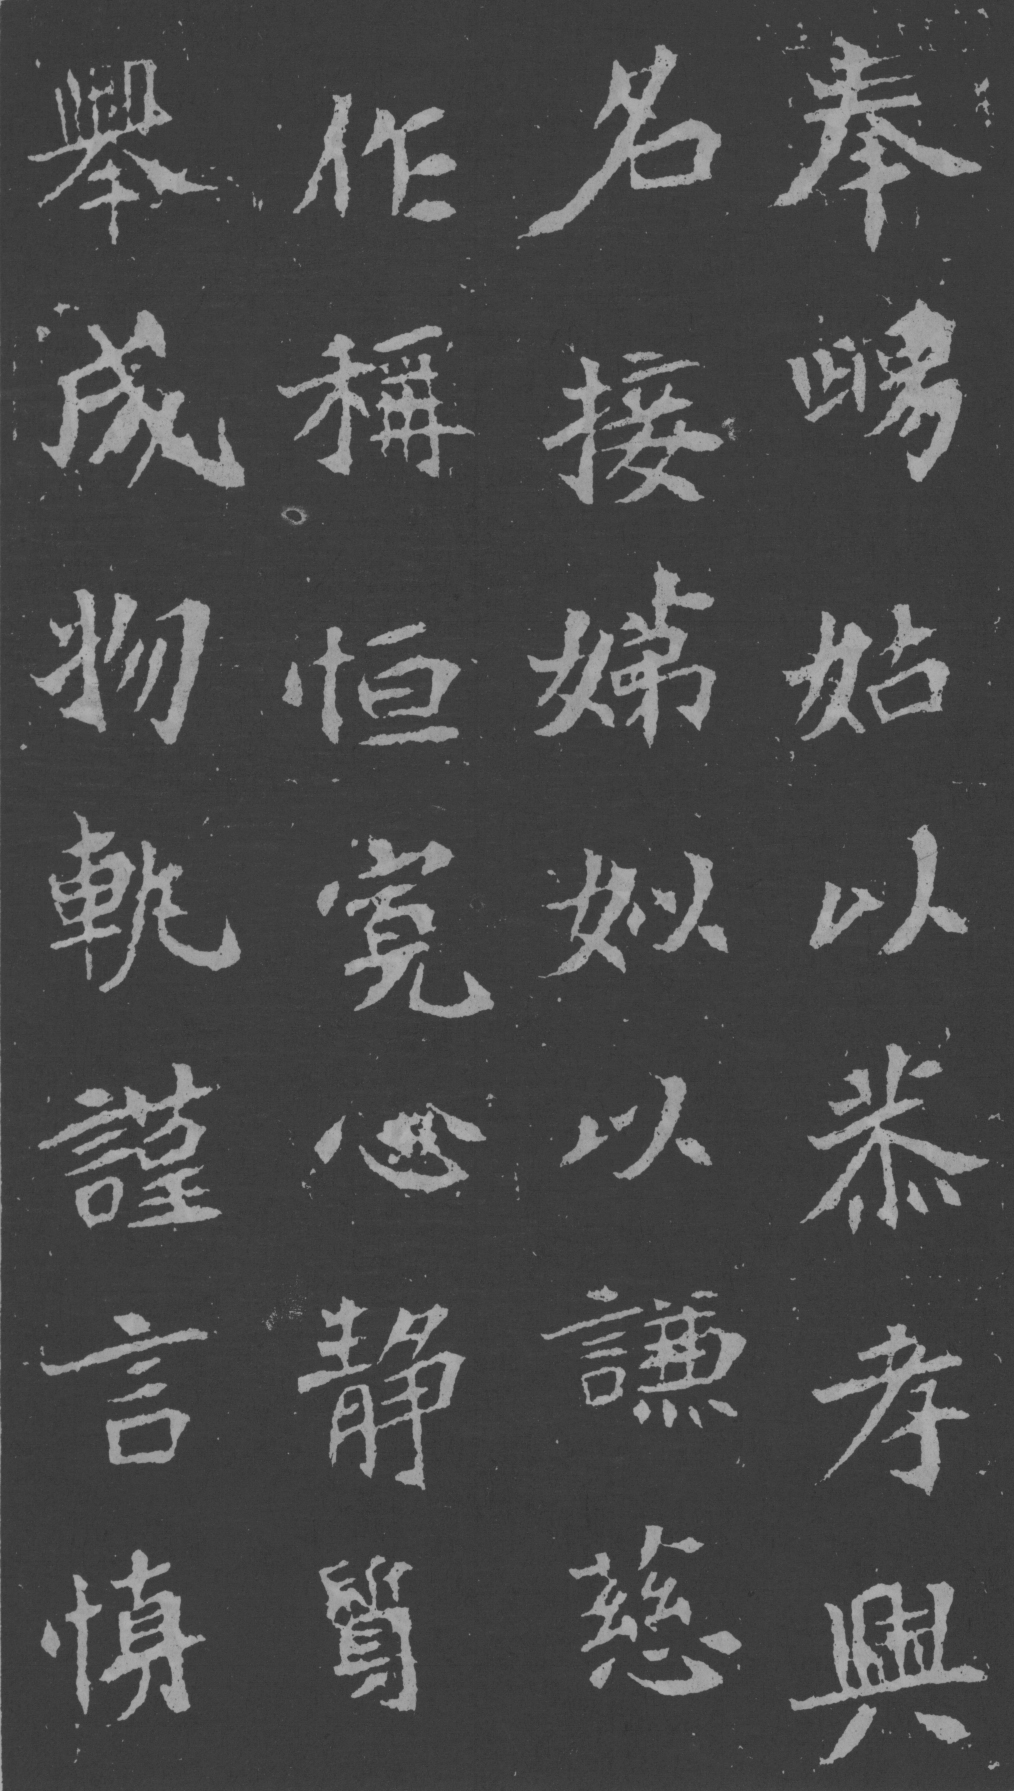 奉舅姑以恭孝興
名接娣姒以謙慈
作稱恒寬心靜質
舉成物軌謹言慎